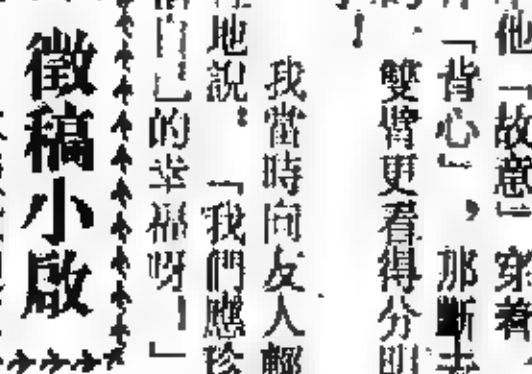 他「故意」穿着
「背心」，那斷
雙臂更看得分明
！
我當時向友人輕
地說：「我們應珍
的幸福呀！」
徵稿小啟